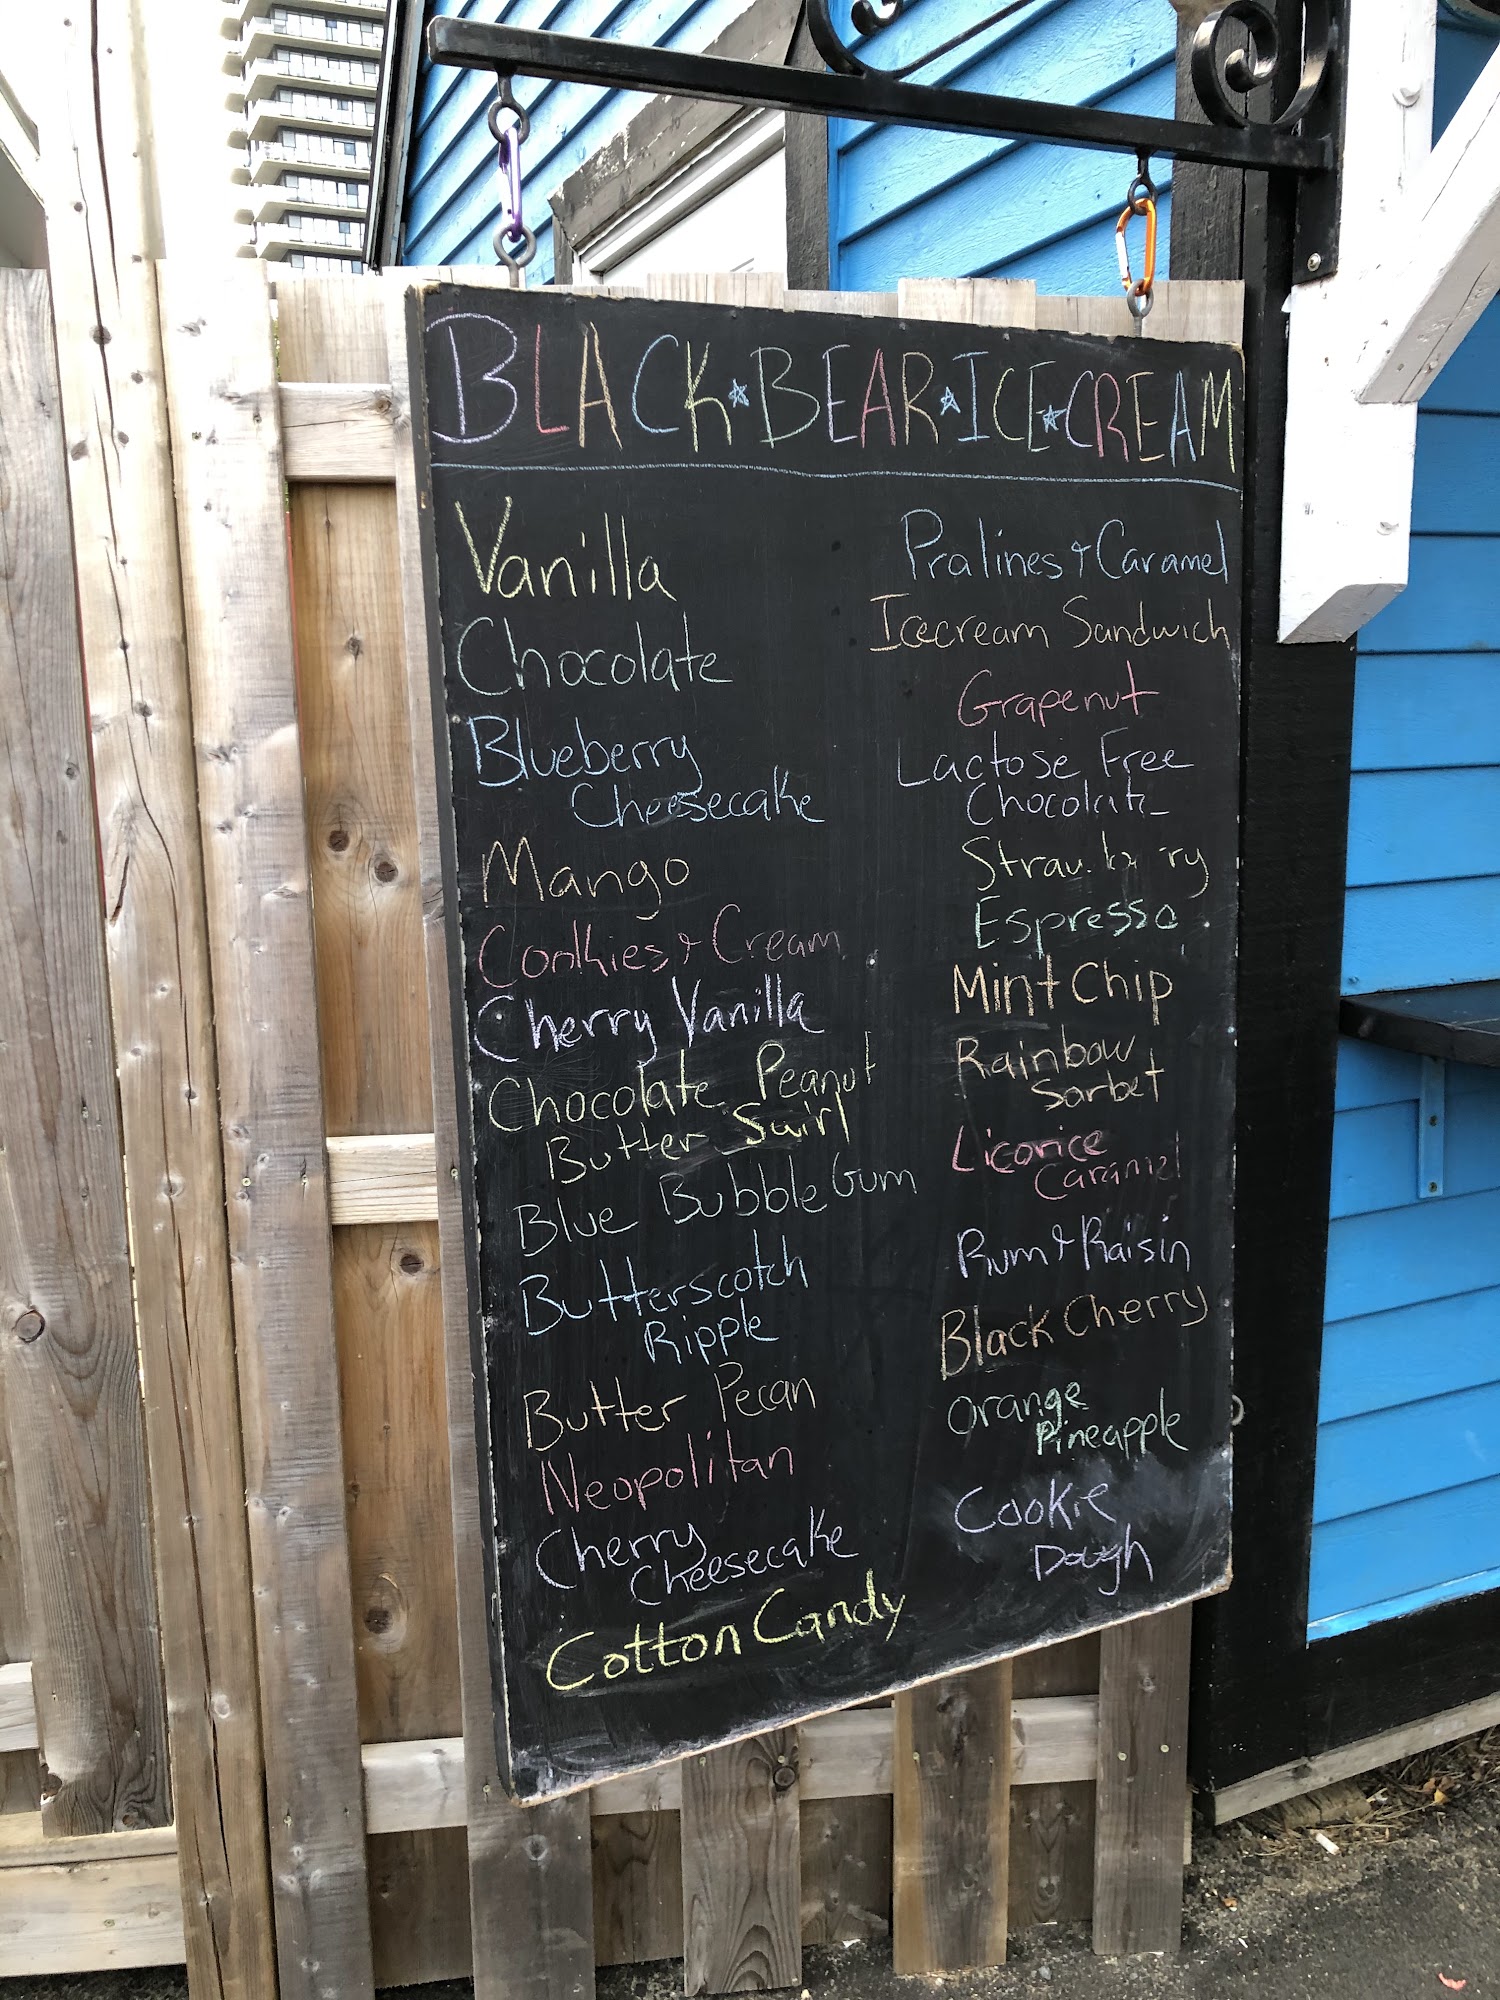 BLACK★BEAR★ICE★CREAM
Vanilla
Chocolate
Blueberry
Cheesecake
Mango
Cookies & Cream
Cherry Vanilla
Chocolate Peanut
Butter Swirl
Blue Bubble Gum
Butterscotch
Ripple
Butter Pecan
Neopolitan
Cherry
Cheesecake
Cotton Candy
Pralines & Caramel
Icecream Sandwich
Grapenut
Lactose Free
Chocolate
Strawberry
Espresso
Mint Chip
Rainbow
Sorbet
Licorice
Caramel
Rum & Raisin
Black Cherry
Orange
Pineapple
Cookie
Dough